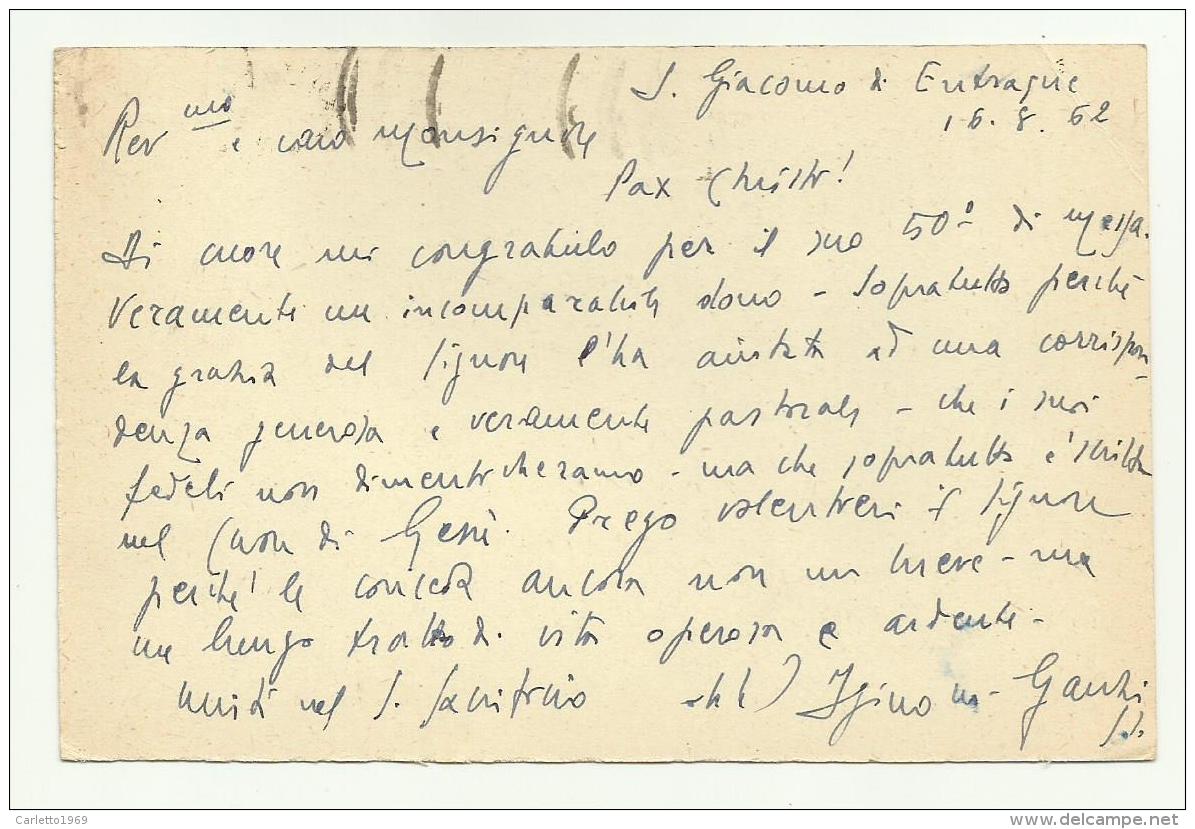 S. Giacomo di Entraque
16. 8. 62
Rev mo e caro Monsignore
Pax Christi!
Di cuore mi congratulo per il suo 50º di Messa.
Veramente un incomparabile dono - Sopratutto perché
la grazia del Signore l'ha aiutata ad una corrispon-
denza generosa e veramente pastorale - che i suoi
fedeli non dimenticheranno - ma che sopratutto è scritta
nel Cuore di Gesù. Prego volentieri il Signore
perché le conceda ancora non un breve - ma
un lungo tratto di vita operosa e ardente -
Uniti nel S. Sacrificio Igino M. Ganzi
S.J.
Carletto1969
www.delcampe.net